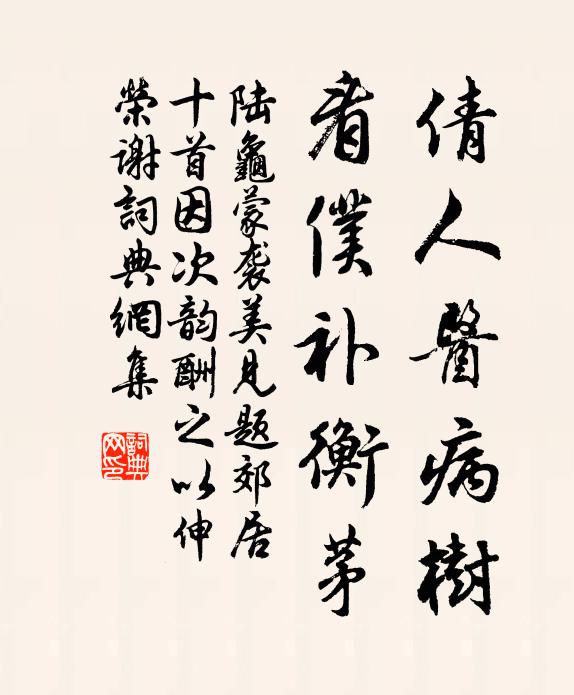 倩人醫病樹
看僕补衡茅
陆龜蒙袭美见题郊居
十首因次韵酬之以伸
榮谢詞典網集
詞典
网印